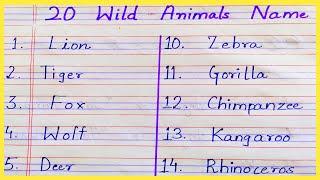 20 Wild Animals Name
1. Lion
2. Tiger
3. Fox
4. Wolf
5. Deer
10. Zebra
11. Gorilla
12. Chimpanzee
13. Kangaroo
14. Rhinoceros